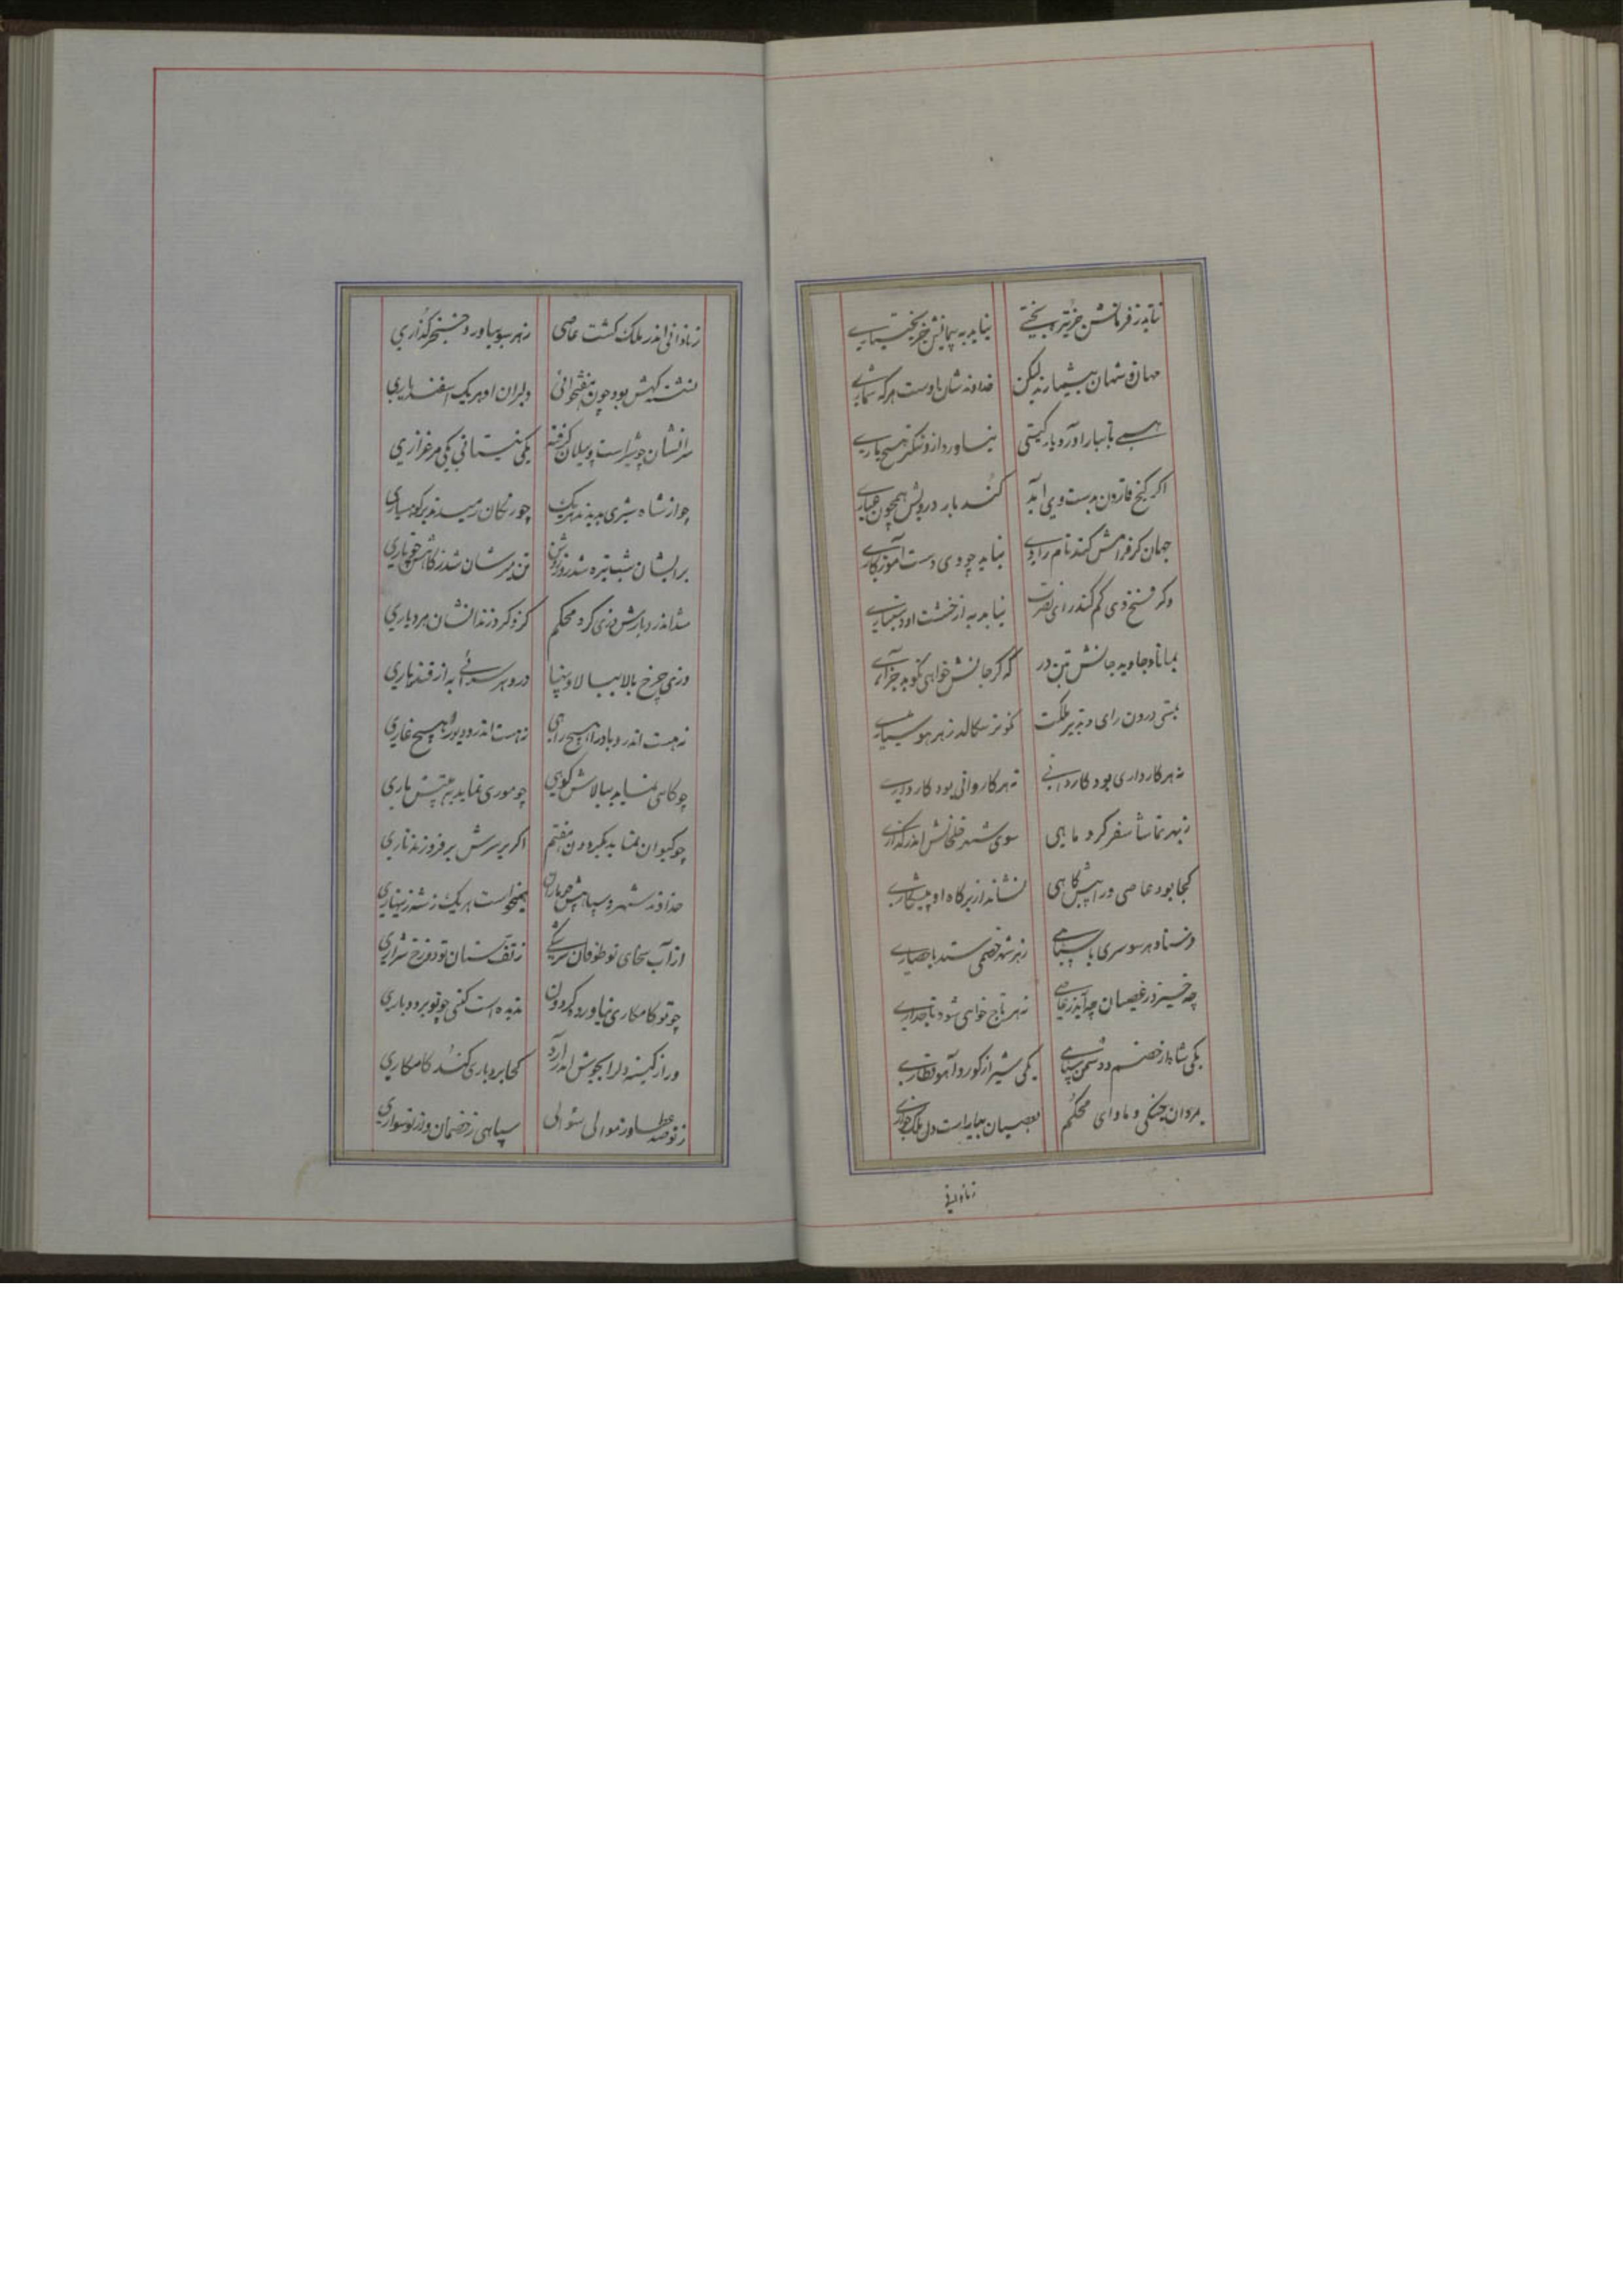 نتابد ز فرمانش جز تیره بختی نیاید به پیمانش جز بختیاری
مهان و شهان بیشمارند لیکن خداوندشان اوست هر که شماری
همی تا بیارا ورد بار گیتی نیاورد ازو نیکتر هیچ باری
اگر گنج قارون بدست وی آید کند بار درویش همچون غباری
جهان گر فرامش کند نام رادی نیاید چو وی دست آموزگاری
وگر فتح وی کم کند رای نصرت نیابد به از خشت او دستیاری
بماناد جاوید جانش بتن در که گر جانش خواهی نگوید جز آری
بیتی درون رای و تدبیر ملکت نکوتر سکالد ز هر هوشیاری
نه هر کارداری بود کاردانی نه هر کاردانی بود کارداری
ز بهر تماشا سفر کرد ماهی سوی شهر خلخالش اندر گذاری
کجا بود عاصی ورا پیشگاهی نشاند از بر گاه او پیشکاری
فرستاد هر سو سری با سپاهی ز هر شهر خصمی ستد با حصاری
چه خیزد ز عصیان چه آید ز عاصی نه هر تاج خواهی شود تاجداری
یکی شاه از خصم و دشمن سپاهی یکی شیر از گور و آهو قطاری
بمردان جنگی و ماوای محکم بعصیان بیاراست دل ملک خواری
زنادانی
ز نادانی اندر ملک گشت عاصی ز هر سو بیاورد خنجر گذاری
نشسته گهش بود چون هفتخوانی دلیران او هر یک اسفندیاری
سرانشان چو شیر است و پیلان گرفته یکی نیستانی یکی مرغزاری
چو از شاه شیری بدیدند هر یک چو رنگان رمیدند بر کوهساری
بر ایشان شب تیره شد روز روشن تن میرشان شد ز کاهش چو تاری
شد اندر دیارش دزی کرد محکم کزو کرد زندانشان مرد باری
دزی چرخ بالا بیالا و پهنا درو هر سرائی به از قندهاری
نه هست اندر و باد را هیچ راهی نه هست اندرو دیو را هیچ غاری
چو کاهی نماید ببالاش کوهی چو موری نماید بپیشش ماری
چو کیوان نماید بگردون هفتم اگر بر سرش برفروزند ناری
خداوند شهر و سپاهش همیخواست هر یک ز شه زینهاری
از آب سخای تو طوفان سرشکی ز تف سنان تو دوزخ شراری
چو تو کامکاری نیاورد گردون ندیده است گیتی چو تو بردباری
ور از کینه دل را بجوش اندر آرد کجا بردباری کند کامکاری
ز تو صد عطا و ز موالی سؤالی سپاهی ز خصمان و از تو سواری